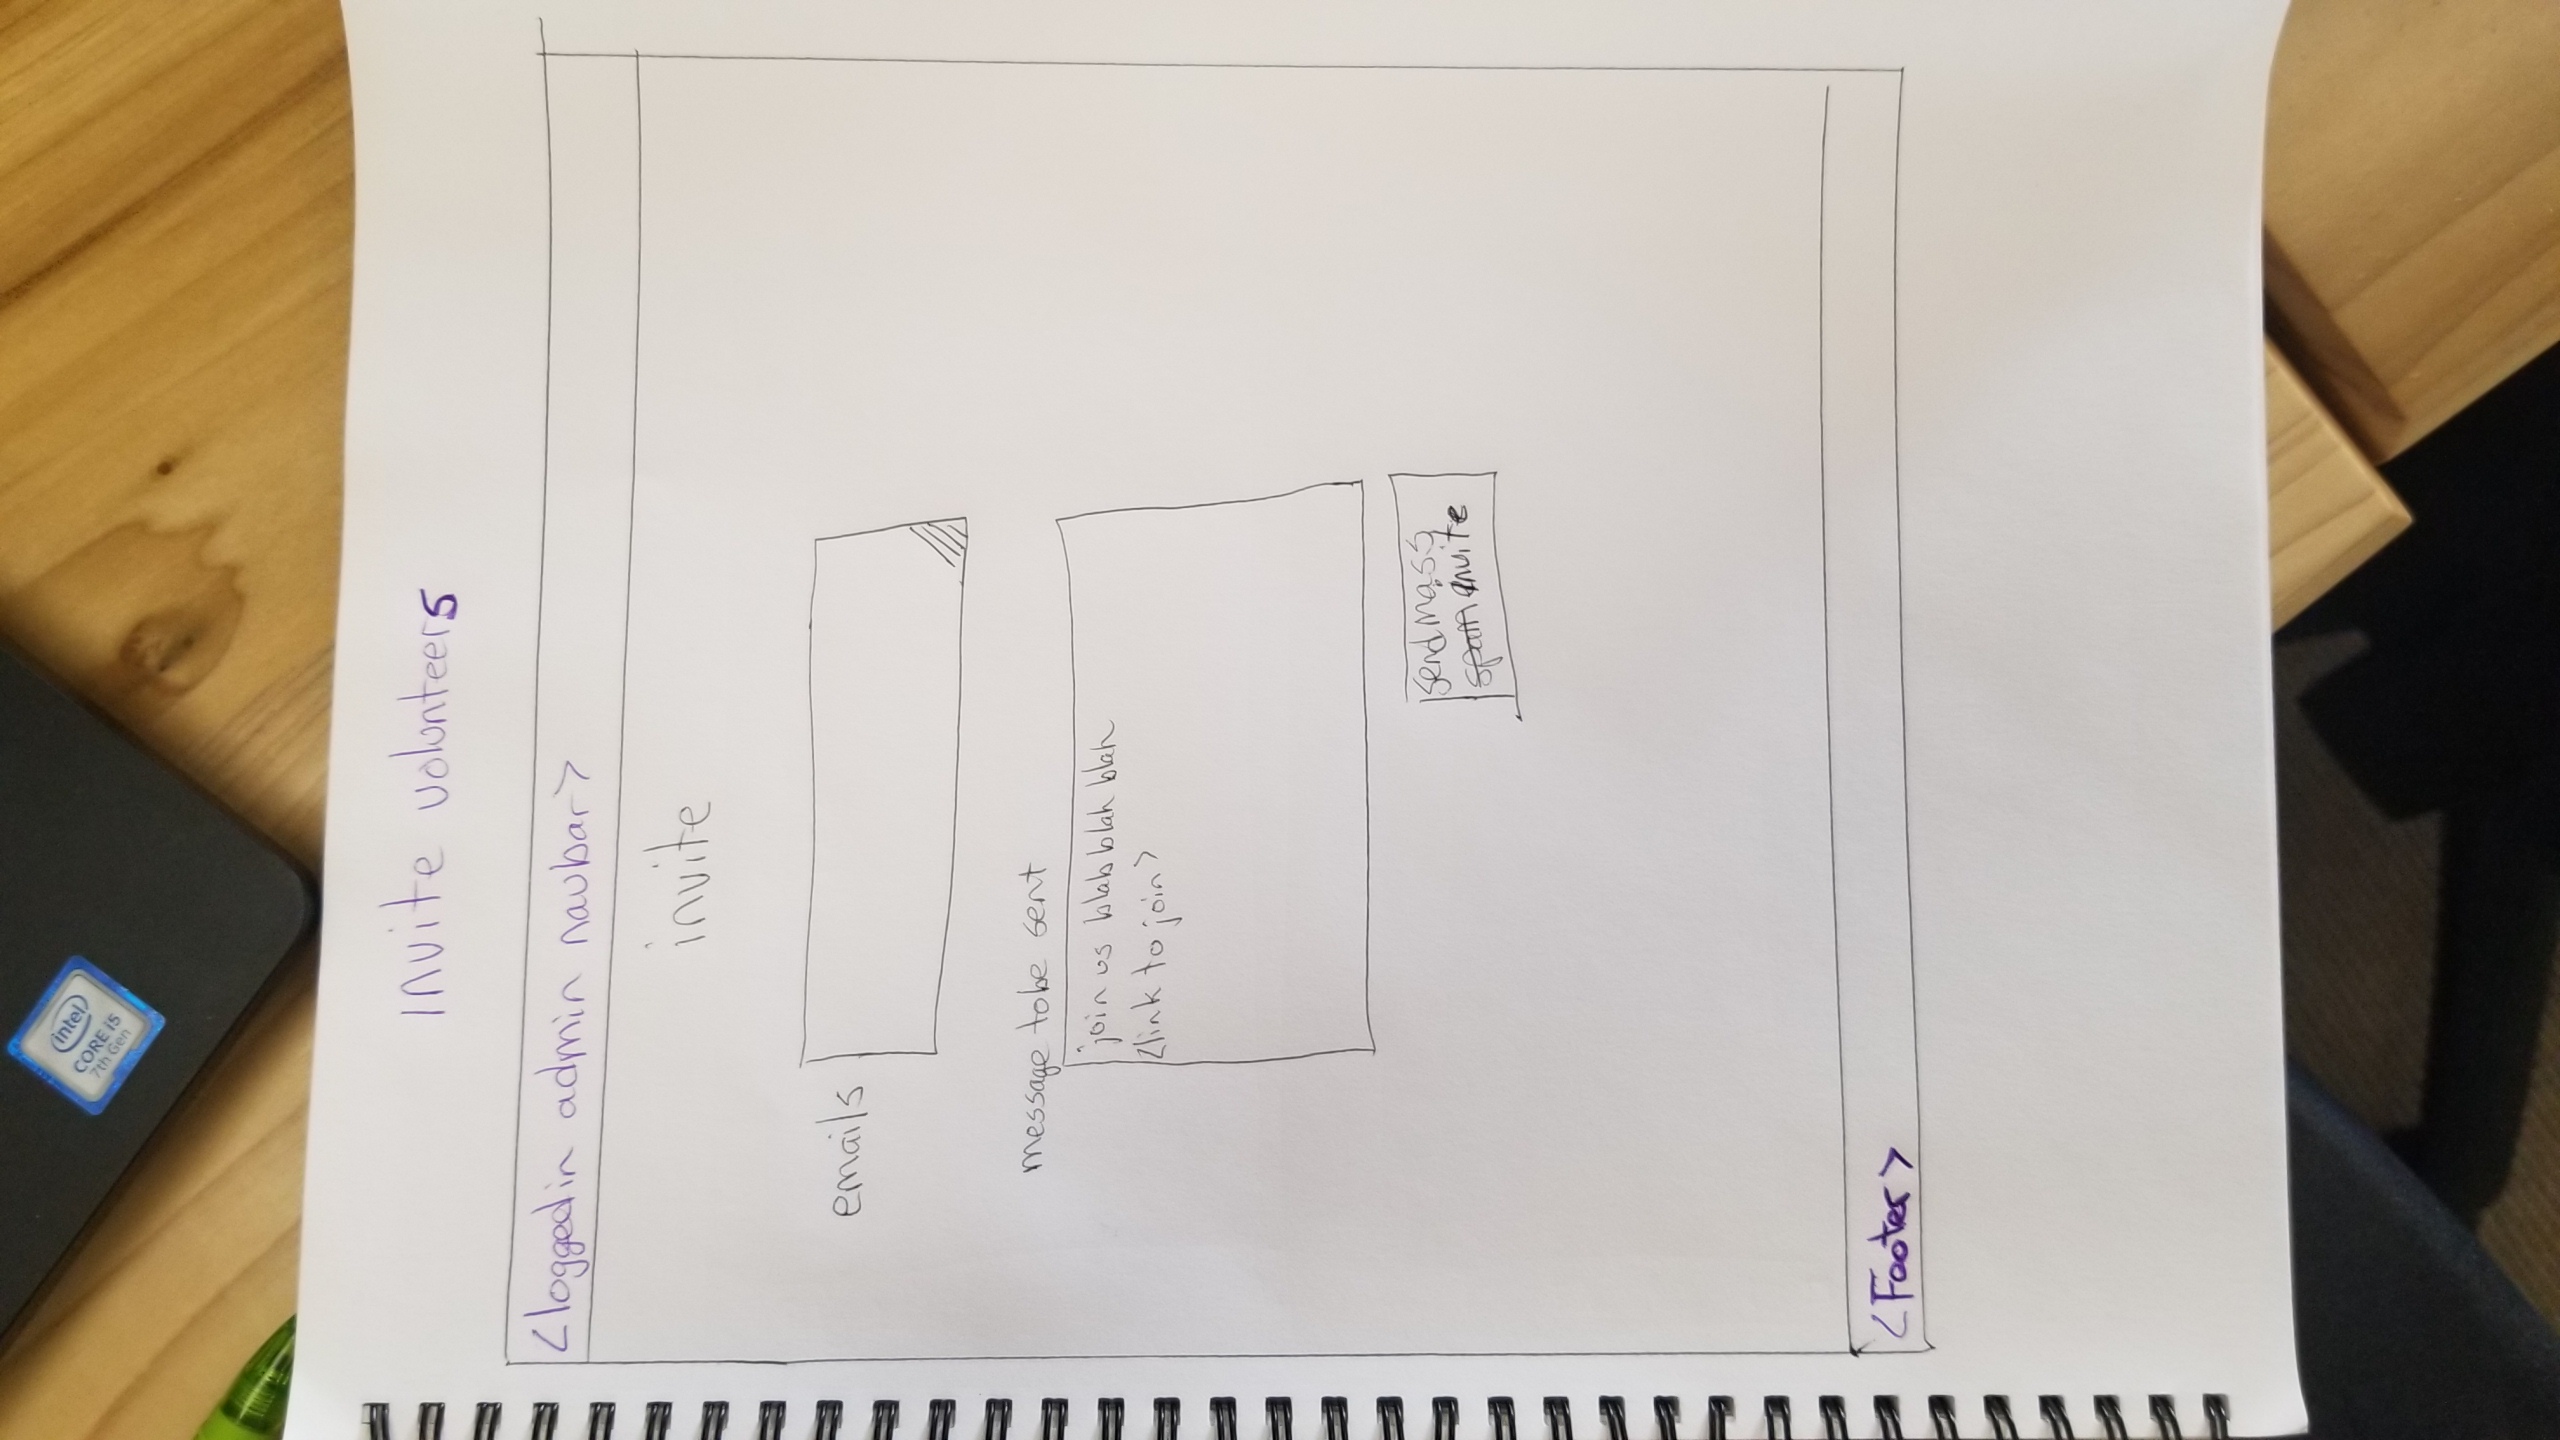 intel
CORE i5
7th Gen
Invite volunteers
<loggedin admin navbar>
invite
emails
message to be sent
join us blah blah blah
<link to join>
send mass
spam invite
<Footer>